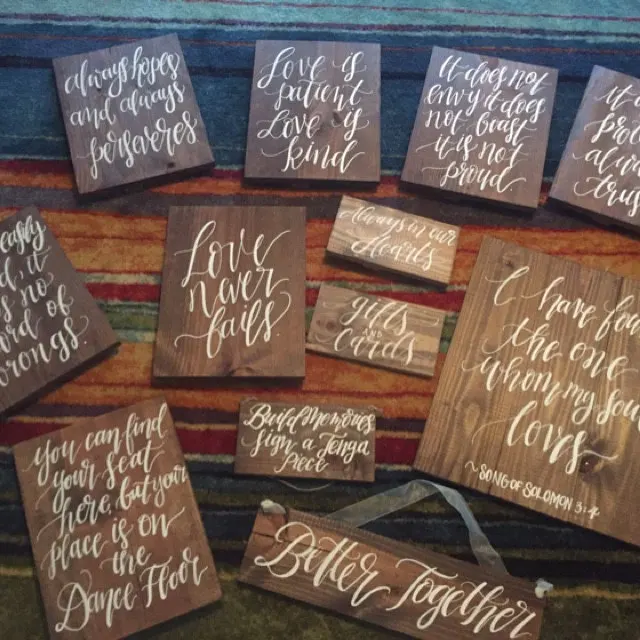 always hopes
and always
perseveres
Love is
patient
Love is
kind
It does not
envy it does
not boast
it is not
proud
it
pro
alwa
trus
easily
d, it
s no
ord of
wrongs.
Love
never
fails
Always in our
Hearts
Gifts
AND
Cards
I have fo
the one
whom my soul
loves
~ SONG OF SOLOMON 3:4
You can find
your seat
here, but your
place is on
the
Dance Floor
Build Memories
sign a Jenga
Piece
Better Together